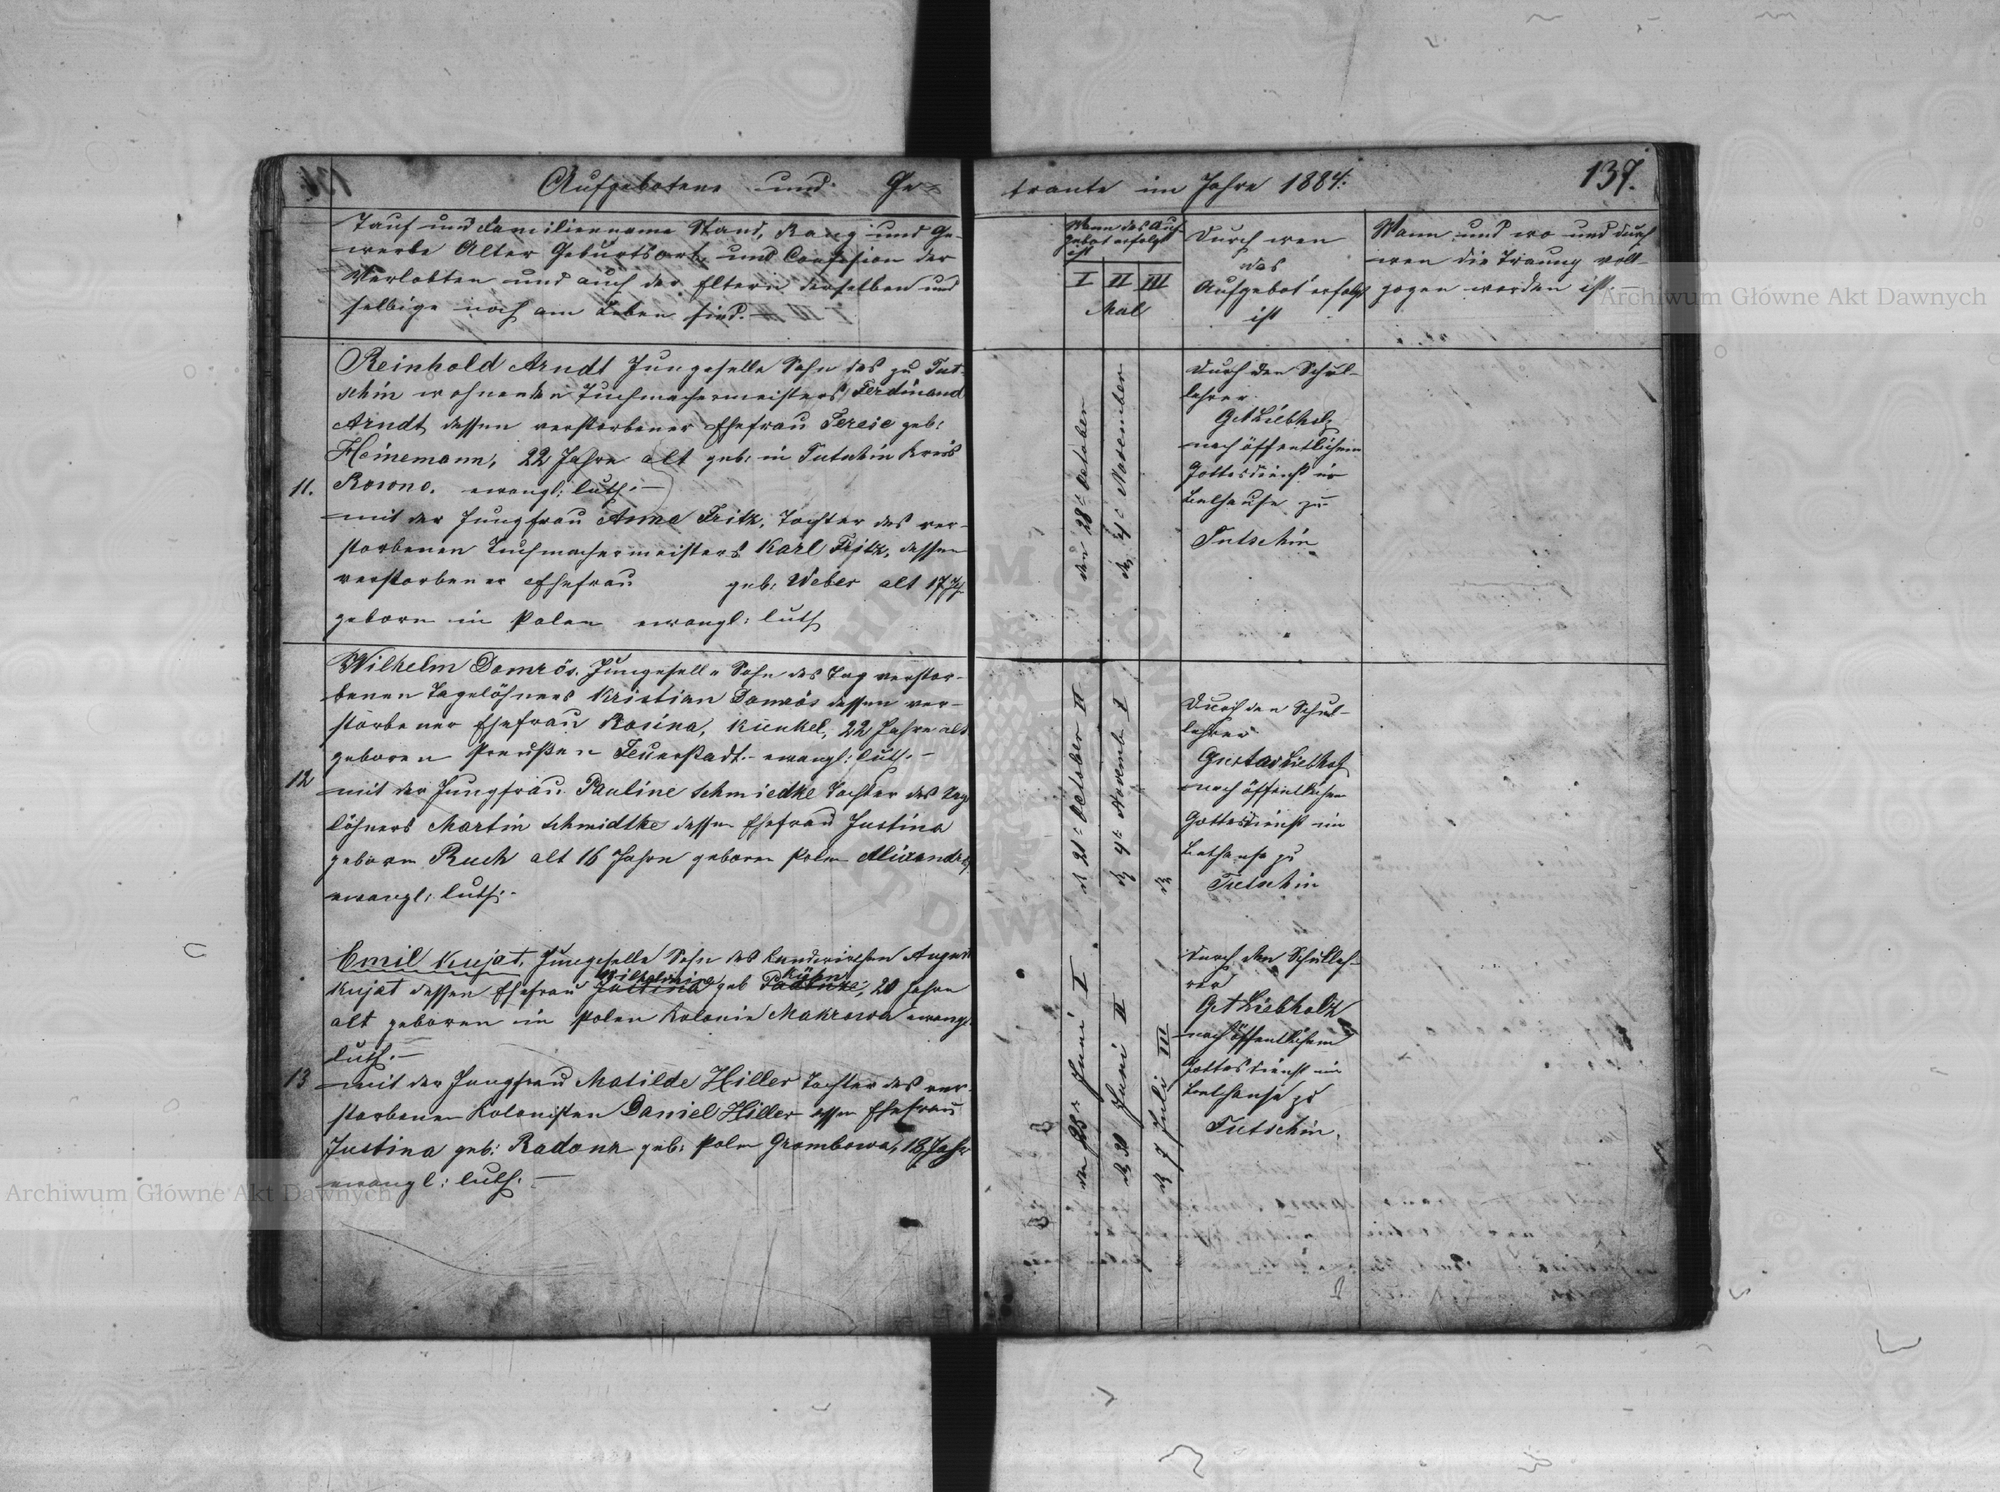 Aufgebotene und Ge-
traute im Jahre 1884.
139.
Tauf und Familienname Stand, Rang und Ge-
werbe Alter Geburtsort, und Confesion der
Verlobten und auch der Eltern derselben und
selbige noch am Leben sind.
Wann das Auf-
gebot erfolgt
ist
I II III
Mal
Durch wen
das
Aufgebot erfolgt
ist
Wann und wo und durch
wen die Trauung voll-
zogen worden ist.
11.
Reinhold Arndt Jungeselle Sohn des zu Tut-
schin wohnenden Tuchmachermeisters Ferdinand
Arndt dessen verstorbener Ehefrau Teresie geb:
Heinemann, 22 Jahre alt geb: in Tutschin Kreis
Rowno. ewangl: luth: —
mit der Jungfrau Anna Fritz, Tochter des ver-
storbenen Tuchmachermeisters Karl Fritz, dessen
verstorbener Ehefrau geb: Weber alt 17 J.
geborn in Polen ewangl: luth
den 28t October
den 4t: November
Durch den Schul-
lehrer
G. A Liebholz
nach öffentlichem
Gottesdienst im
Bethause zu
Tutschin
12
Wilhelm Domrös, Jungesell Sohn des verstor-
benen Tagelöhners Kristian Domrös dessen ver-
storbener Ehefrau Rosina, Kunkel, 22 Jahre alt
geboren Preußen ewangl: luth. —
mit der Jungfrau Pauline Schmiedke Tochter des Tag
löhners Martin Schmidtke dessen Ehefrau Justina
geborn Ruch alt 16 Jahre geboren Polen
ewangl: luth: -
d 21t October II
d 4t Novemb I
d
Durch den Schul-
lehrer
Gustav Liebholz
nach öffentlichem
Gottesdienst im
Bethause zu
Tutschin
13
Emil Kujat, Jungeselle Sohn des Landwirthen August
Wilhelmine Kühn
Kujat dessen Ehefrau Justina geb 20 Jahre
alt geboren in Polen Kolonie Makrowa ewangl.
luth. —
mit der Jungfrau Matilde Hiller Tochter des ver-
storbenen Kolonisten Daniel Hiller dessen Ehefrau
Justina geb: Radonz geb: Polen Grombowa, 18 Jahr
ewangl: luth. —
den Juni I
d 30 Juni II
d 7 Juli III
Durch den Schulleh-
rer
G. A Liebholz
nach öffentlichem
Gottesdienst im
Bethause zu
Tutschin.
Archiwum Główne Akt Dawnych
Archiwum Główne Akt Dawnych